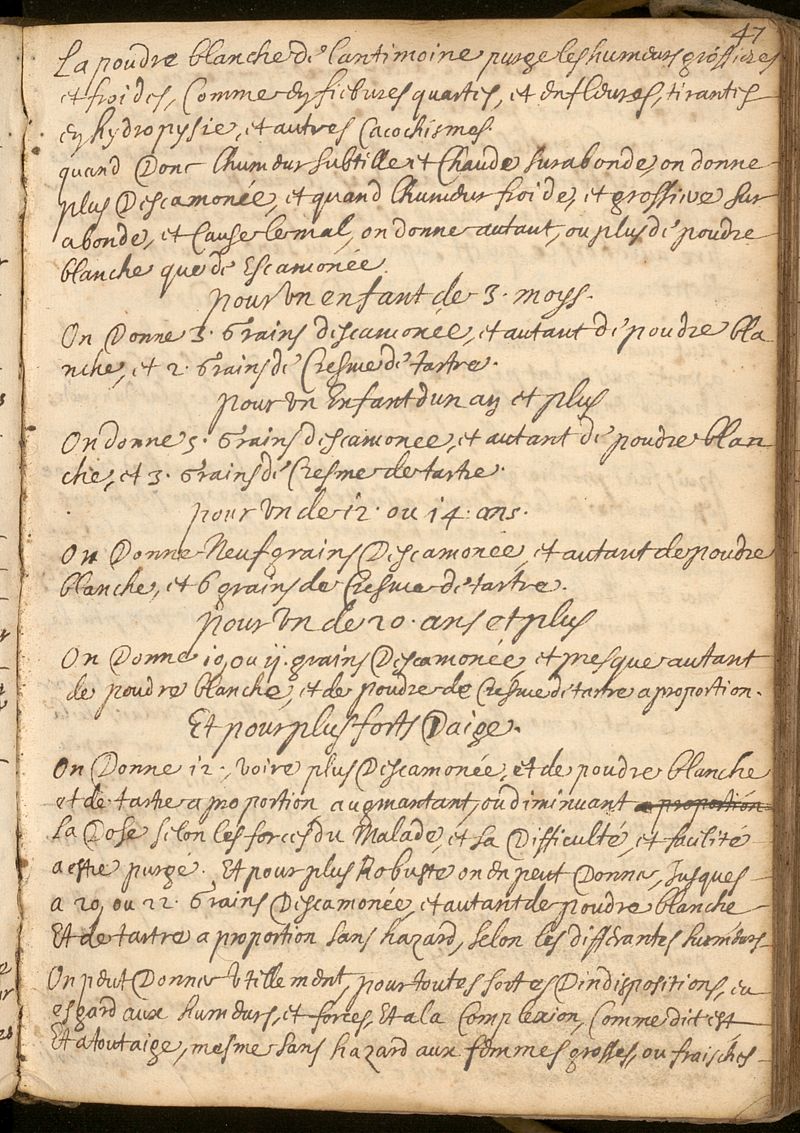 47
La poudre blanche de lantimoine purge les humeurs grossieres
et froides, Comme en fiebures quartes, et enfleures, tirantes
en hydropysie, et autres Cacochismes.
quand Donc lhumeur subtille et Chaude surabonde, on donne
plus Descamonée, et quand lhumeur froide, et grossiere sur
abonde, et Cause le mal, on donne autant, ou plus de poudre
blanche que de Escamonée.
pour un enfant de 3. moys.
On Donne 3. Grains descamonée, et autant de poudre bla
nche, et 2. Grains de Cresme de tartre.
pour un Enfant dun an et plus
On donne 5. Grains descamonee, et autant de poudre blan
che, et 3. Grains de Cresme de tartre.
pour un de 12. ou 14. ans.
On Donne Neuf grains Descamonée, et autant de poudre
blanche, et 6 grains de Cresme de tartre.
pour un de 20. ans et plus
On Donne 10, ou 11. grains Descamonée, et presque autant
de poudre blanche, et de poudre de Cresme de tartre a proportion.
Et pour plus forts Daige.
On Donne 12., voire plus Descamonée, et de poudre blanche
et de tartre a proportion augmantant, ou diminuant a proportion
La Dose selon les forces du Malade, et sa Difficulté, et facilité
a estre purgé. Et pour plus Robuste on en peut Donner, Jusques
a 20, ou 22. Grains Descamonée, et autant de poudre blanche
Et de tartre a proportion sans hazard, selon les differantes humeurs
On peut Donner Utillement, pour toutes sortes Dindispositions, eu
esgard aux humeurs, et forces, Et a la Complexion, Comme dit est
Et a tout aige, mesme sans hazard aux femmes grosses, ou fraisches